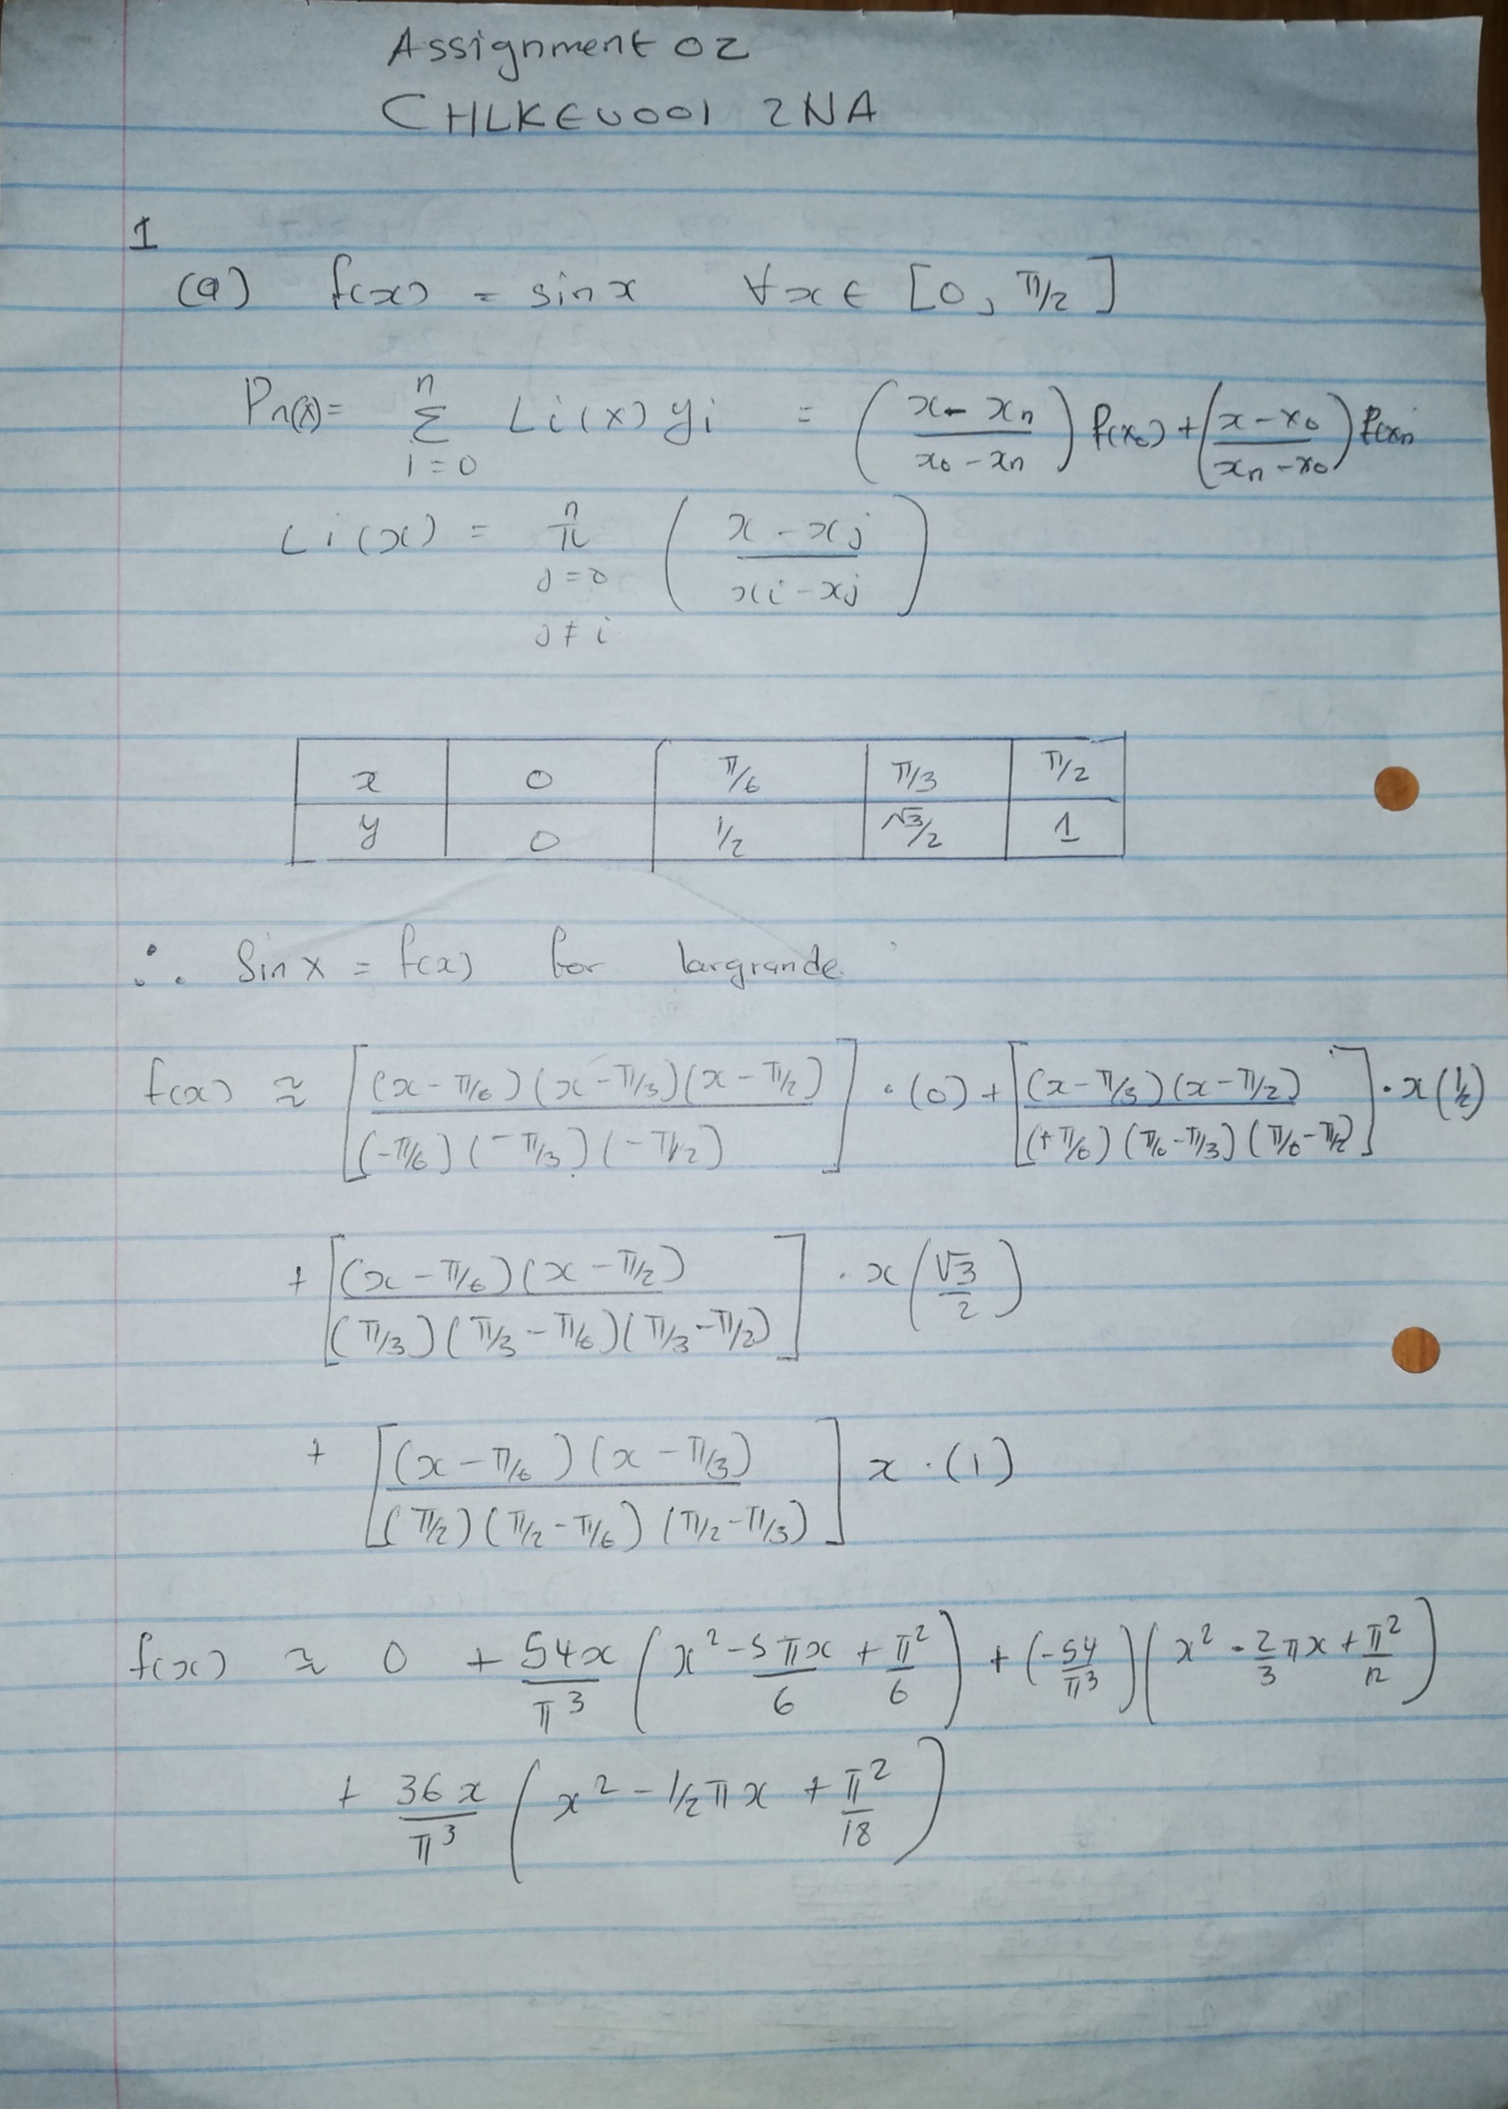 Assignment 02
CHLKEV001 2NA
1
(a) f(x) = sin x ∀x ∈ [0, π/2]
Pn(x) = Σ_{i=0}^{n} Li(x) yi = ((x - xn)/(x0 - xn)) f(x0) + ((x - x0)/(xn - x0)) f(xn
Li(x) = π_{j=0, j≠i}^{n} ((x - xj)/(xi - xj))
x 0 π/6 π/3 π/2
y 0 1/2 √3/2 1
∴ Sin x = f(x) for largrande.
f(x) ≈ [(x - π/6)(x - π/3)(x - π/2) / (-π/6)(-π/3)(-π/2)] · (0) + [(x - π/3)(x - π/2) / (+π/6)(π/6 - π/3)(π/6 - π/2)] · x(1/2)
+ [(x - π/6)(x - π/2) / (π/3)(π/3 - π/6)(π/3 - π/2)] · x(√3/2)
+ [(x - π/6)(x - π/3) / (π/2)(π/2 - π/6)(π/2 - π/3)] x · (1)
f(x) ≈ 0 + 54x/π³ (x² - 5πx/6 + π²/6) + (-54/π³)(x² - 2/3 πx + π²/12)
+ 36x/π³ (x² - 1/2 πx + π²/18)